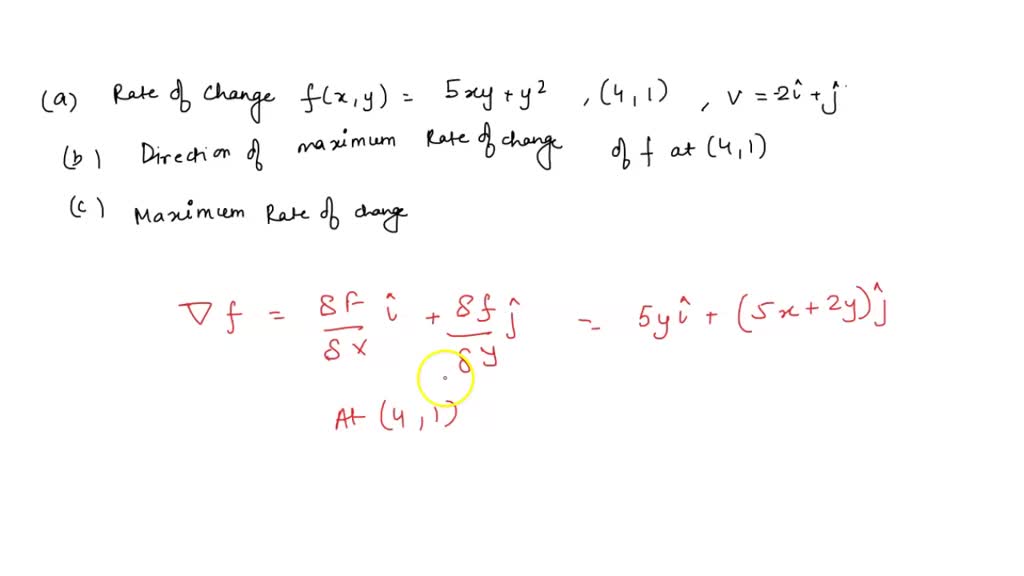 (a) Rate of change f(x,y) = 5xy + y² , (4,1) , v = -2î + ĵ
(b) Direction of maximum Rate of change of f at (4,1)
(c) Maximum Rate of change
∇f = δF/δx î + δf/δy ĵ = 5yî + (5x+2y)ĵ
At (4,1)